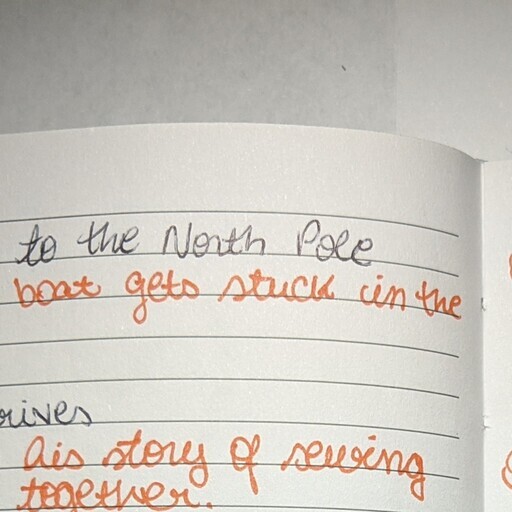 to the North Pole
boat gets stuck in the
rives
his story of sewing
together.